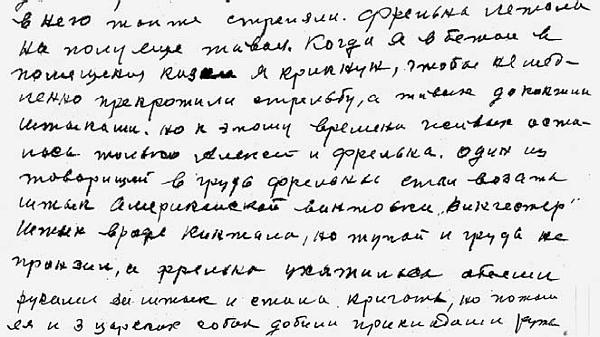 в него тоже стреляли. Фрельна лежала
на полу еще живая. Когда я вбежал в
помещения казни я крикнул, чтобы немед-
ленно прекротили стрельбу, а живых докончили
штыками. но к этому времени в живых оста-
лось только Алексей и фрельна. один из
товарищей в грудь фрельны стал возать
штык Американской винтовки „Винчестер"
штык вроде кинжала, но тупой и грудь не
пронзил, а фрельна ухатилась обеими
руками за штык и стала кричать, но потом
ея и 3 царских собак добили прикладами ружа